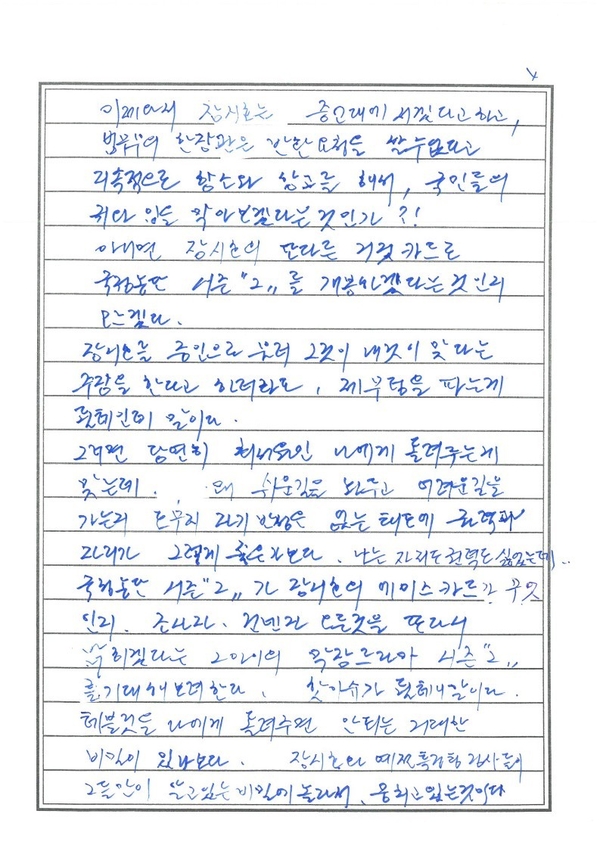 4
이제와서 장시호는 증인대에 서겠다고 하고,
법무부의 한장관은 반환요청을 쌀수없다고
지속적으로 항소와 상고를 해서, 국민들의
귀와 입을 막아보겠다는것인가?!
아니면 장시호의 또다른 거짓카드로
국정농단 시즌"2"를 개봉하겠다는것인지
모르겠다.
장시호를 증인으로 불러 그것이 내것이 맞다는
주장을 한다고 하더라도, 제부덤을 파는게
될테인데 말이다.
그러면 당연히 최서원인 나에게 돌려주는게
맞는데. 왜 쉬운길을 놔두고 어려운길을
가는지 도무지 자기반성은 없는 태도에 권력과
자리가 그렇게 좋은가보다. 나는 자리도 권력도 싫었는데..
국정농단 시즌"2"가 장시호의 에이스카드가 무엇
인지. 조사라. 건넨라 모든것을 또다시
뒤집겠다는 그아이의 막장드라마 시즌"2"
를 기대해보려한다. 핫이슈가 될테니말이다.
테블릿을 나에게 돌려주면 안되는 거대한
비밀이 있나보다. 장시호와 예전특검팀 검사들이
그들만이 알고있는 비밀에 놀라서, 움츠리고있는것이다